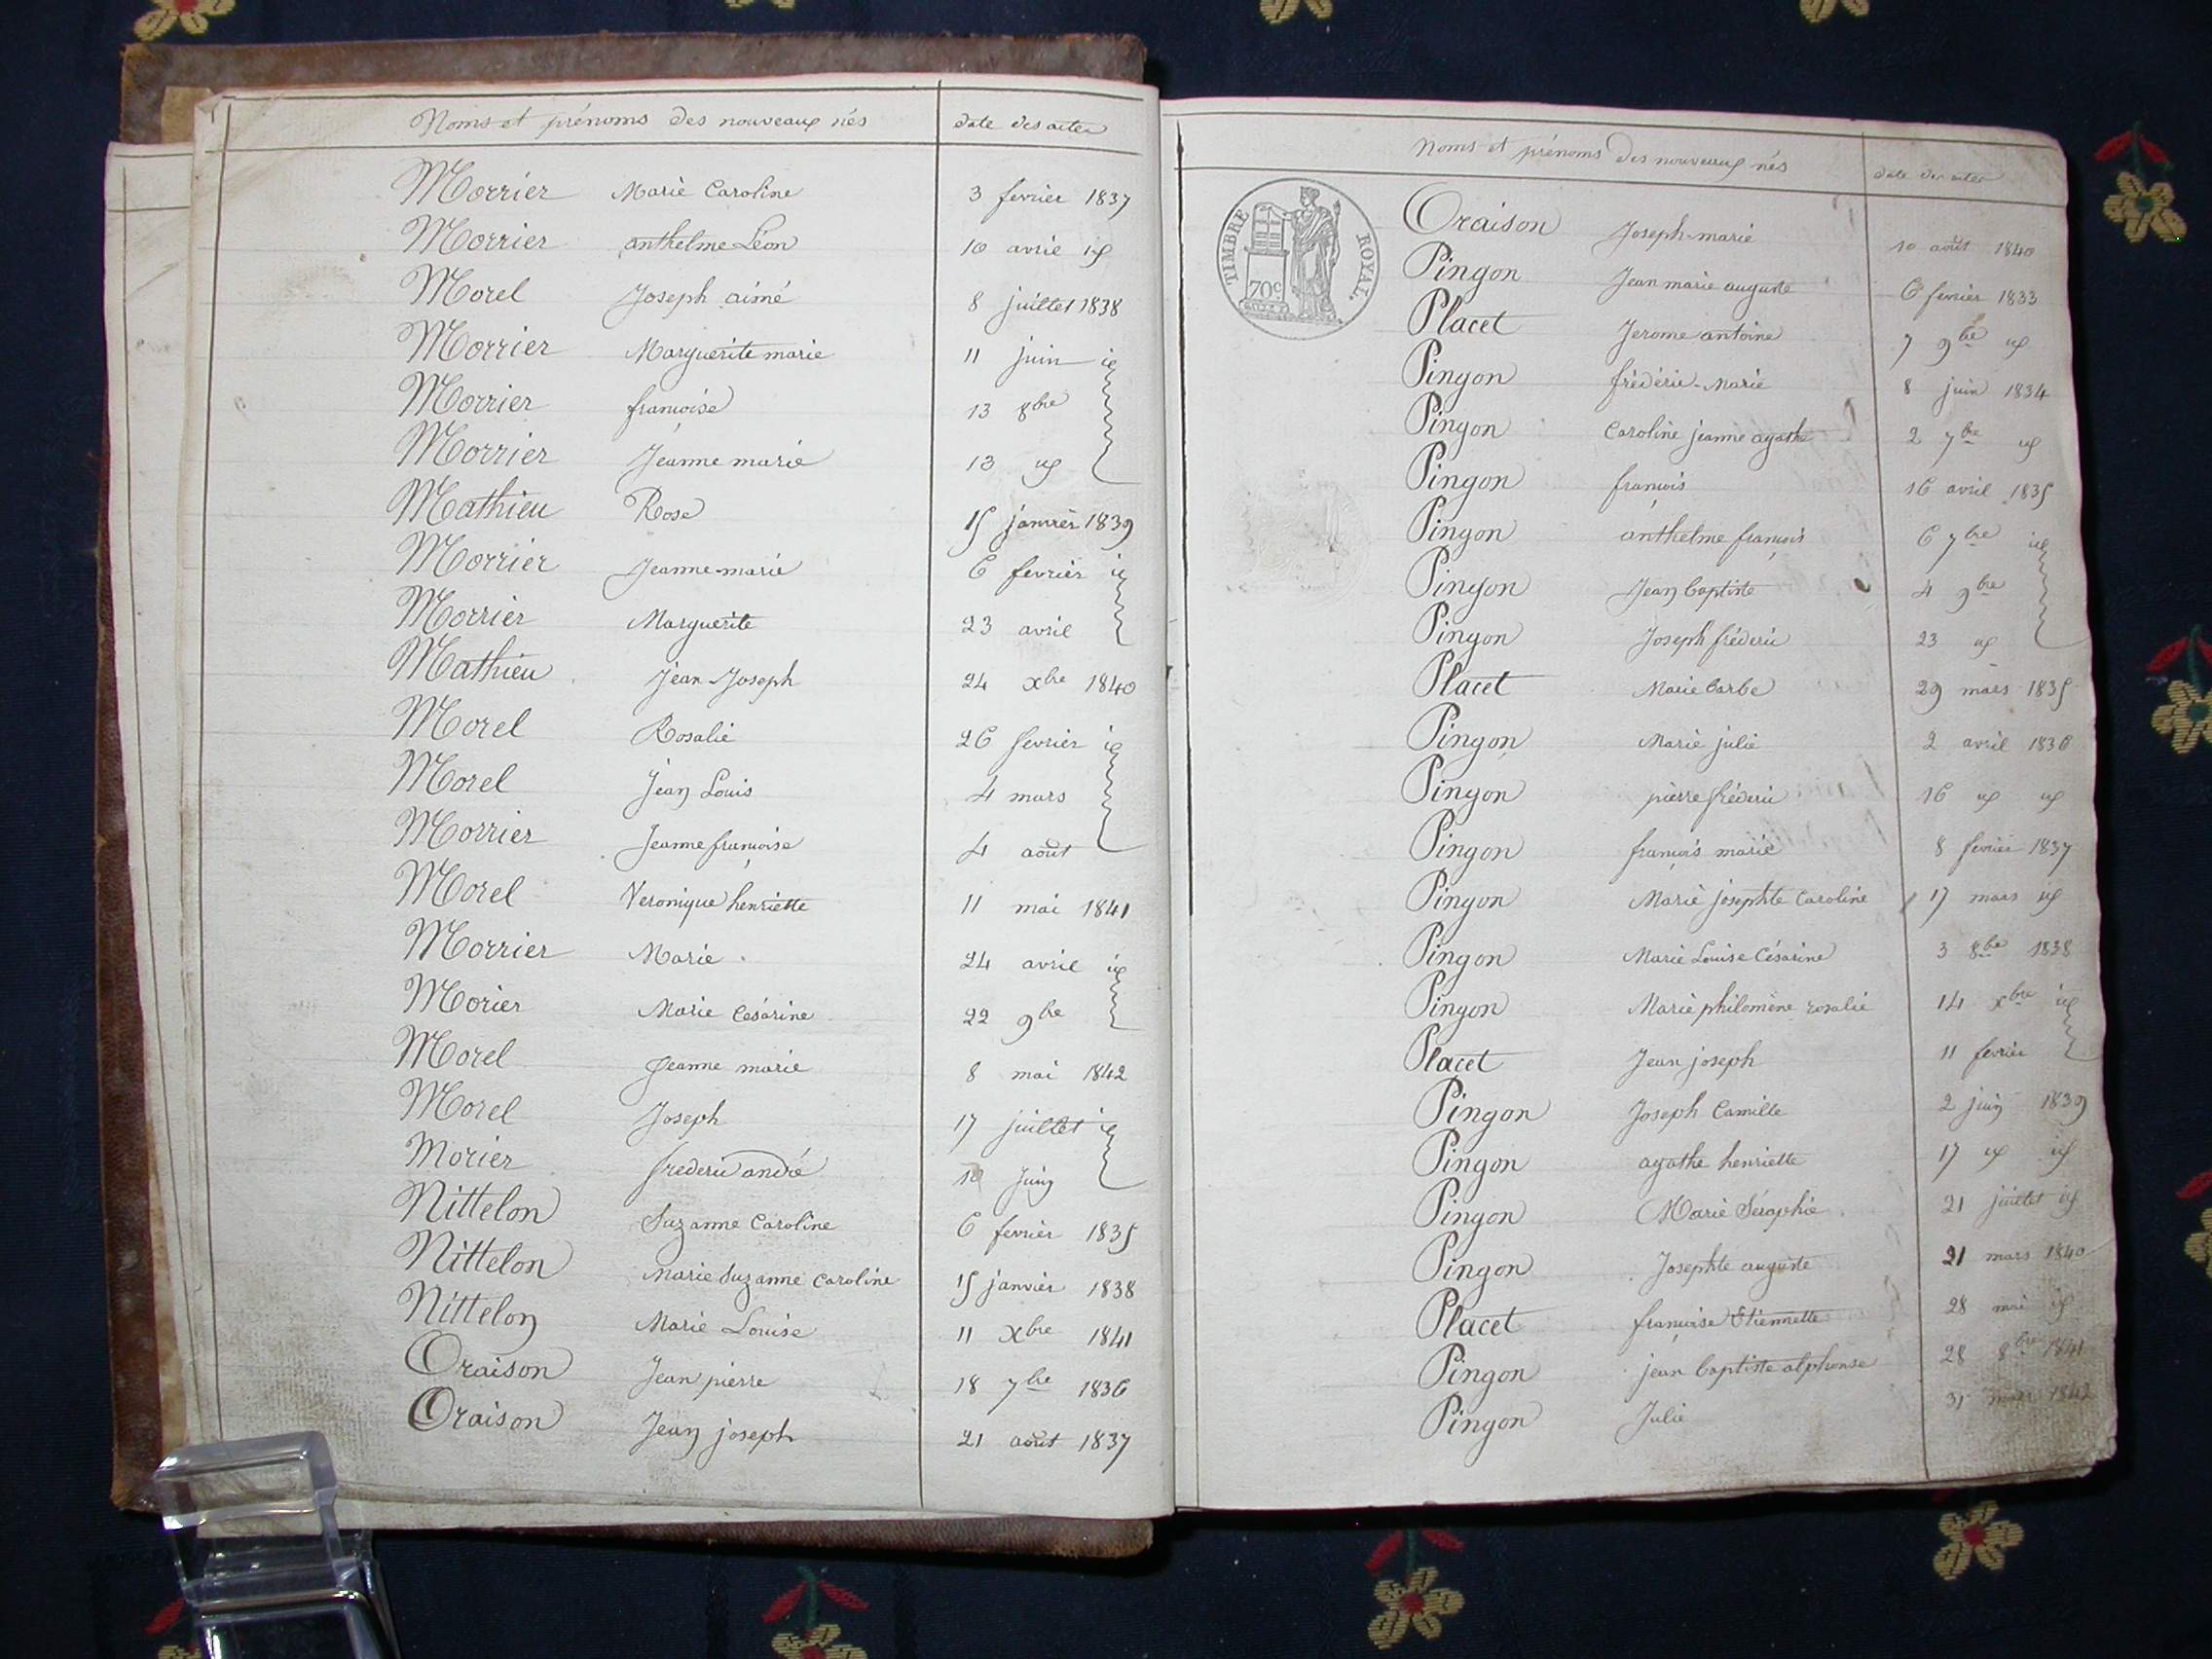 Noms et prénoms des nouveaux nés date des actes
Morrier Marie Caroline 3 fevrier 1837
Morrier anthelme Léon 10 avril id
Morel Joseph aimé 8 juillet 1838
Morrier Marguerite marie 11 juin id
Morrier françoise 13 8bre
Morrier Jeanne marie 13 id
Mathieu Rose 15 janvier 1839
Morrier Jeanne-marie 6 fevrier id
Morrier Marguerite 23 avril
Mathieu Jean Joseph 24 xbre 1840
Morel Rosalie 26 fevrier id
Morel Jean Louis 4 mars
Morrier Jeanne françoise 4 août
Morel Veronique henriette 11 mai 1841
Morrier Marie 24 avril id
Morier Marie Césarine 22 9bre
Morel Jeanne marie 8 mai 1842
Morel Joseph 17 juillet id
Morier frederic andré 10 Juin
Nittelon Suzanne Caroline 6 fevrier 1835
Nittelon Marie Suzanne Caroline 15 janvier 1838
Nittelon Marie Louise 11 Xbre 1841
Oraison Jean pierre 18 7bre 1836
Oraison Jean joseph 21 août 1837
Noms et prénoms des nouveaux nés date des actes
TIMBRE ROYAL.
70c
Oraison Joseph-marie 10 août 1840
Pingon Jean marie auguste 6 fevrier 1833
Placet Jerome antoine 7 9bre id
Pingon frédéric-Marie 8 juin 1834
Pingon Caroline jeanne agathe 2 7bre id
Pingon françois 16 avril 1835
Pingon anthelme françois 6 7bre id
Pingon Jean baptiste 4 9bre
Pingon Joseph fréderic 23 id
Placet Marie barbe 29 mars 1835
Pingon Marie julie 2 avril 1836
Pingon pierre fréderic 16 id id
Pingon françois marie 8 fevrier 1837
Pingon Marie josephte Caroline 17 mars id
Pingon Marie Louise Césarine 3 8bre 1838
Pingon Marie philomène rosalie 14 xbre id
Placet Jean joseph 11 fevrier
Pingon Joseph Camille 2 juin 1839
Pingon agathe henriette 17 id id
Pingon Marie Séraphie 21 juillet id
Pingon Josephte auguste 21 mars 1840
Placet françoise Etiennette 28 mai id
Pingon jean baptiste alphonse 28 8bre 1841
Pingon Julie 31 mars 1842